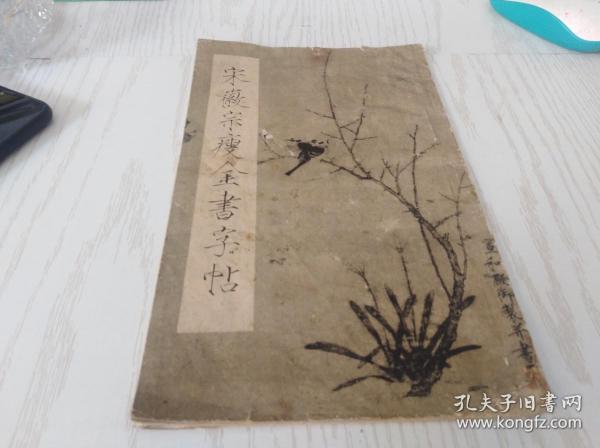 宋徽宗瘦金書字帖
宣和殿御製并書
孔夫子旧书网
www.kongfz.com